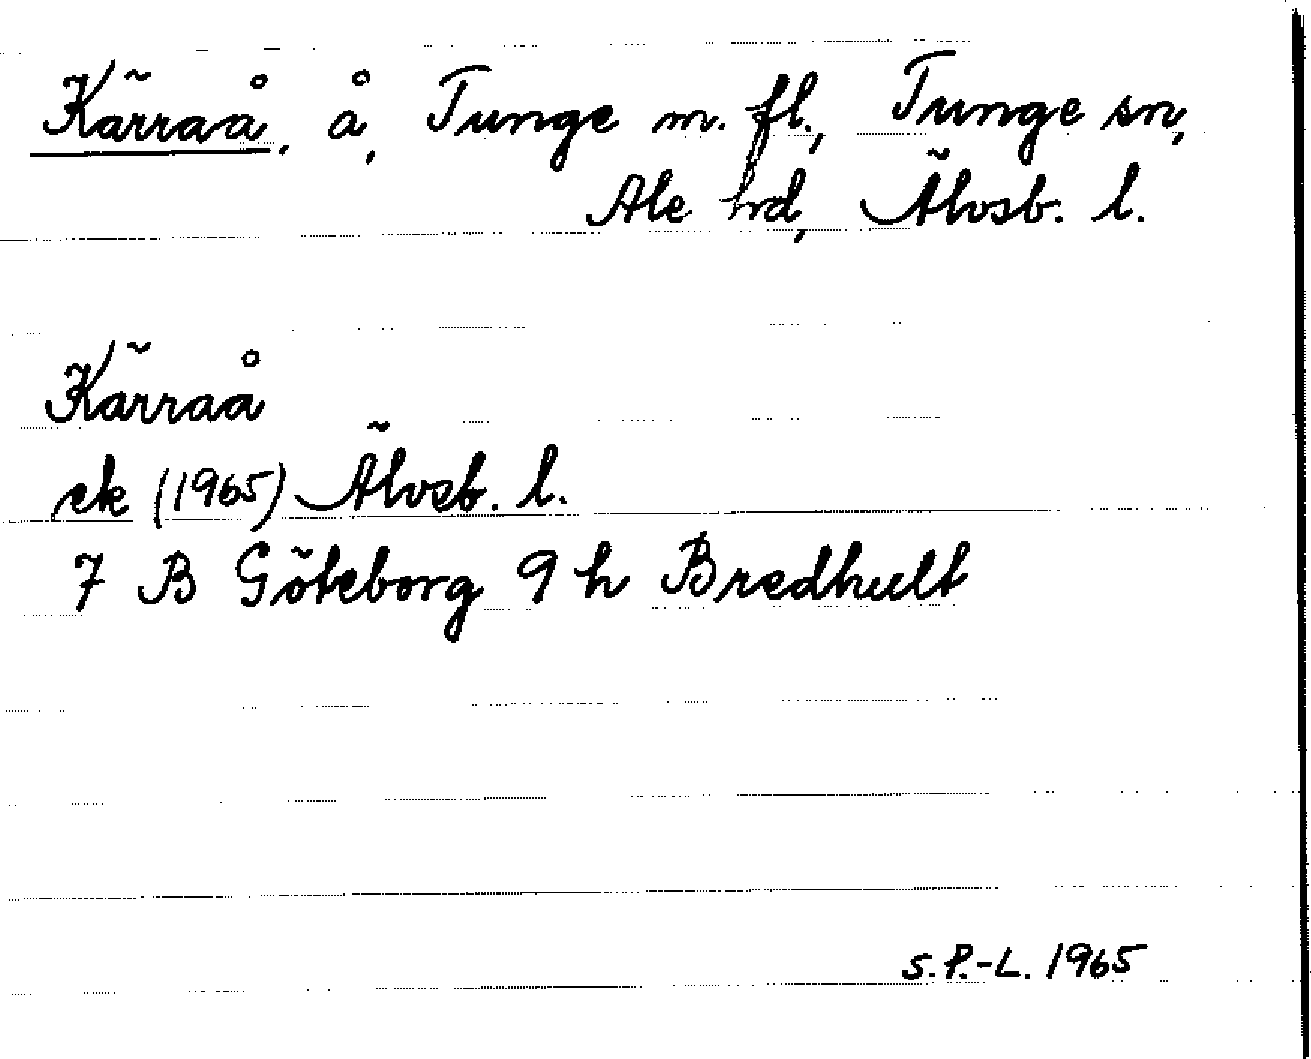 Kärraå, å, Tunge m. fl., Tunge sn,
Ale hd, Älvsb. l.
Kärraå
ek (1965) Älvsb. l.
7 B Göteborg 9 h Bredhult
S. P.-L. 1965